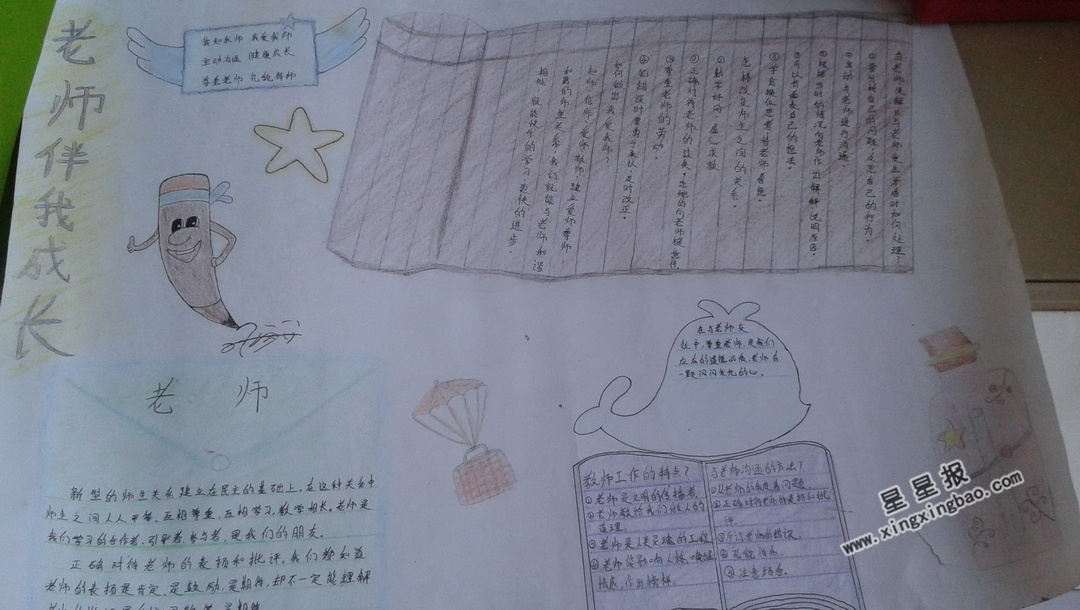 老师伴我成长
我知教师 我爱教师
主动沟通 健康成长
尊重老师 礼貌待师
当老师误解我与老师发生矛盾时如何处理!
①要分析自己的问题,反思自己的行为。
②主动与老师进行沟通。
③根据当时的情况向老师作出解释说明原因。
④可以书面表自己的想法。
⑤学会换位思考替老师着想。
怎样改变师生之间的关系。
①勤学好问,虚心求教
②正确对待老师的过失,委婉的向老师提意件
③尊重老师的劳动。
④犯错误时要勇于承认,及时改正。
如何做出我爱我师?
知师,信师,爱师,敬师,建立爱师尊师,
和爱的师生关系,我们就能与老师和谐
相处,就能快乐的学习,更快的进步。
老师
新型的师生关系建立在民主的基础上,在这种关系中
师生之间人人平等,互相尊重,互相学习,教学相长。老师是
我们学习的合作者,引导者,参与者,是我们的朋友。
正确对待老师的表扬和批评。我们都知道
老师的表扬是肯定,是鼓励,是期待,却不一定能理解
在与老师交
往中,尊重老师,是我们
应有的道德品质,老师有
一颗闪闪发光的心。
教师工作的特点?
①老师是文明的传播者,
②老师教给我们做人的
道理
③老师是人类灵魂的工程
④老师
情感,作出榜样。
与老师沟通的方法?
①从老师的角度看问题,
②正确对待老师的表扬和批
评。
③原谅老师的错误。
④礼貌待师
⑤注意场合。
星星报
www.xingxingbao.com